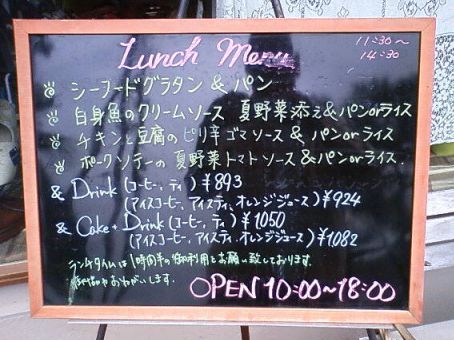 Lunch Menu
11:30～
14:30
シーフードグラタン & パン
白身魚のクリームソース 夏野菜添え&パンorライス
チキンと豆腐のピリ辛ゴマソース & パンorライス
ポークソテーの夏野菜トマトソース&パンorライス.
& Drink (コーヒー、ティ) ¥893
(アイスコーヒー、アイスティ、オレンジジュース) ¥924
& Cake + Drink (コーヒー、ティ) ¥1050
(アイスコーヒー、アイスティ、オレンジジュース) ¥1082
ランチタイムは1時間半の御利用とお願い致しております。
おねがいします.
OPEN 10:00～18:00